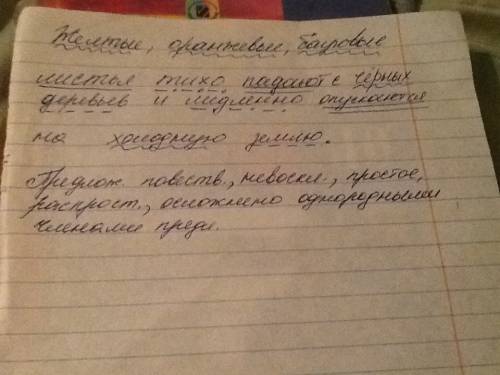 Желтые, оранжевые, багровые
листья тихо падают с чёрных
деревьев и медленно опускаются
на холодную землю.
Предлож. повеств., невоскл., простое,
распрост., осложнено однородными
членами предл.